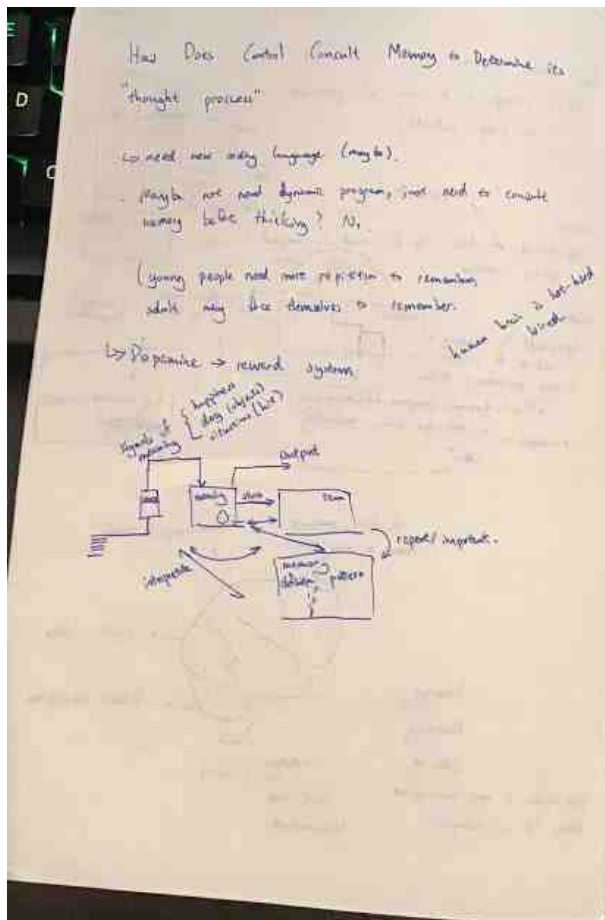 How Does Control Consult Memory to Determine its
"thought process"
↳ need new coding language (maybe).
- Maybe not need dynamic program, just need to consult
memory before thinking? No,
( young people need more repitition to remember,
adult may force themselves to remember.
human brain is
↳ Dopamine → reward system
signals of meaning
happiness
dog (object)
Output
meaning
store
interpretate
repeat / important.
memory
pattern